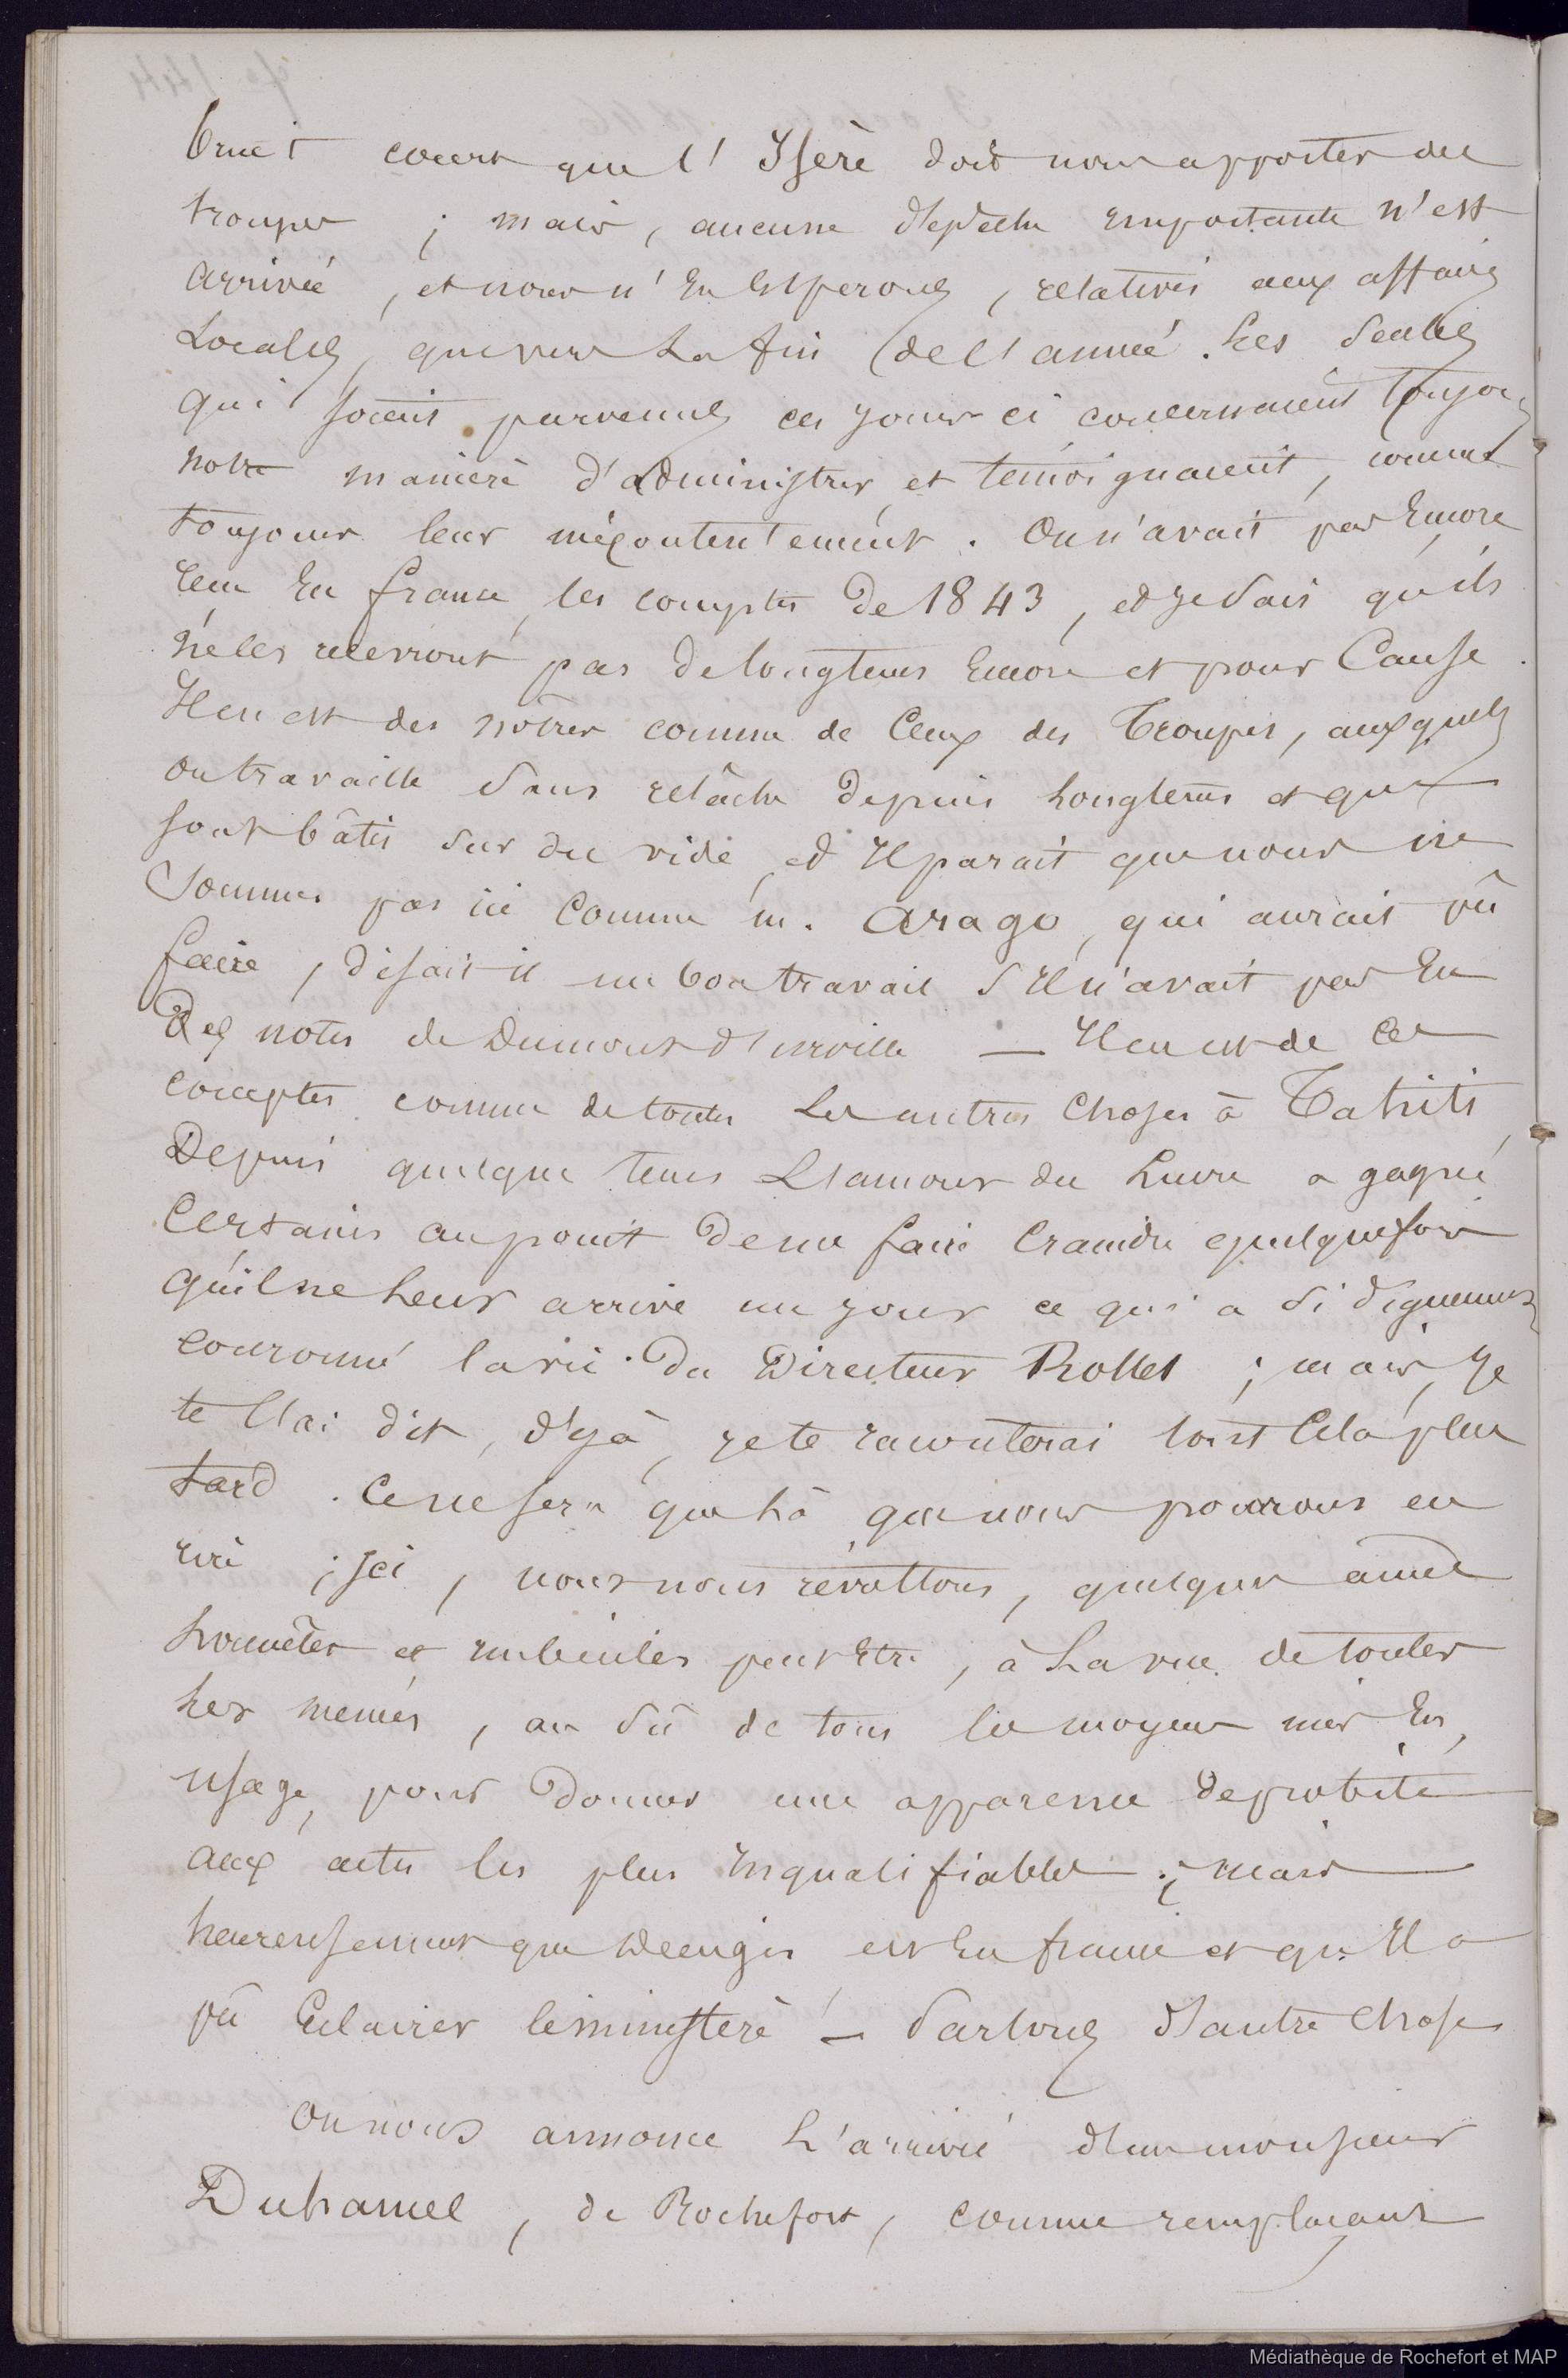 bruit court que l'Isère doit nous apporter des
troupes ; mais, aucune dépêche importante n'est
arrivée, et nous n'en esperons, relatives aux affaires
Locales, que vers La fin de l'année. Les Seules
qui soient parvenues ces jours ci concernaient toujours
notre manière d'administrer et témoignaient, comme
toujours leur mécontentement. On n'avait pas Encore
reçu En france, les comptes de 1843, et je Sais qu'ils
ne les recevront pas de longtems Encore et pour Cause.
Il en est des nôtres comme de Ceux des Troupes, auxquels
on travaille Sans relâche depuis Longtems et qui
sont bâtis Sur du vide, et Il parait que nous ne
Sommes pas ici Comme m. Arago, qui aurait pû
faire, disait-il un bon travail S'Il n'avait pas Eu
Des notes de Dumont d'urville — Il en est de Ces
comptes comme de toutes Les autres Choses à Tahiti,
Depuis quelque tems L'amour du Lucre a gagné
Certains au point de me faire Craindre quelquefois
qu'il ne Leur arrive un jour ce qui a Si dignement
couronné la vie du Directeur Rollet ; mais, Je
te l'ai dit, déjà, je te raconterai tout Cela plus
tard. Ce ne sera que Là que nous pourrons en
rire ; Ici, nous nous révoltons, quelques âmes
honnêtes et imbéciles peut Etre, à La vue de toutes
Les menées, au Sû de tous les moyens mis En
usage, pour Donner une apparence de probité
aux actes les plus Inqualifiables ; mais
heureusement que est En france et qu'Il a
pû Eclairer le ministère ! — Parlons d'autre Chose
On nous annonce L'arrivée d'un monsieur
Duhamel, de Rochefort, comme remplaçant
Médiathèque de Rochefort et MAP